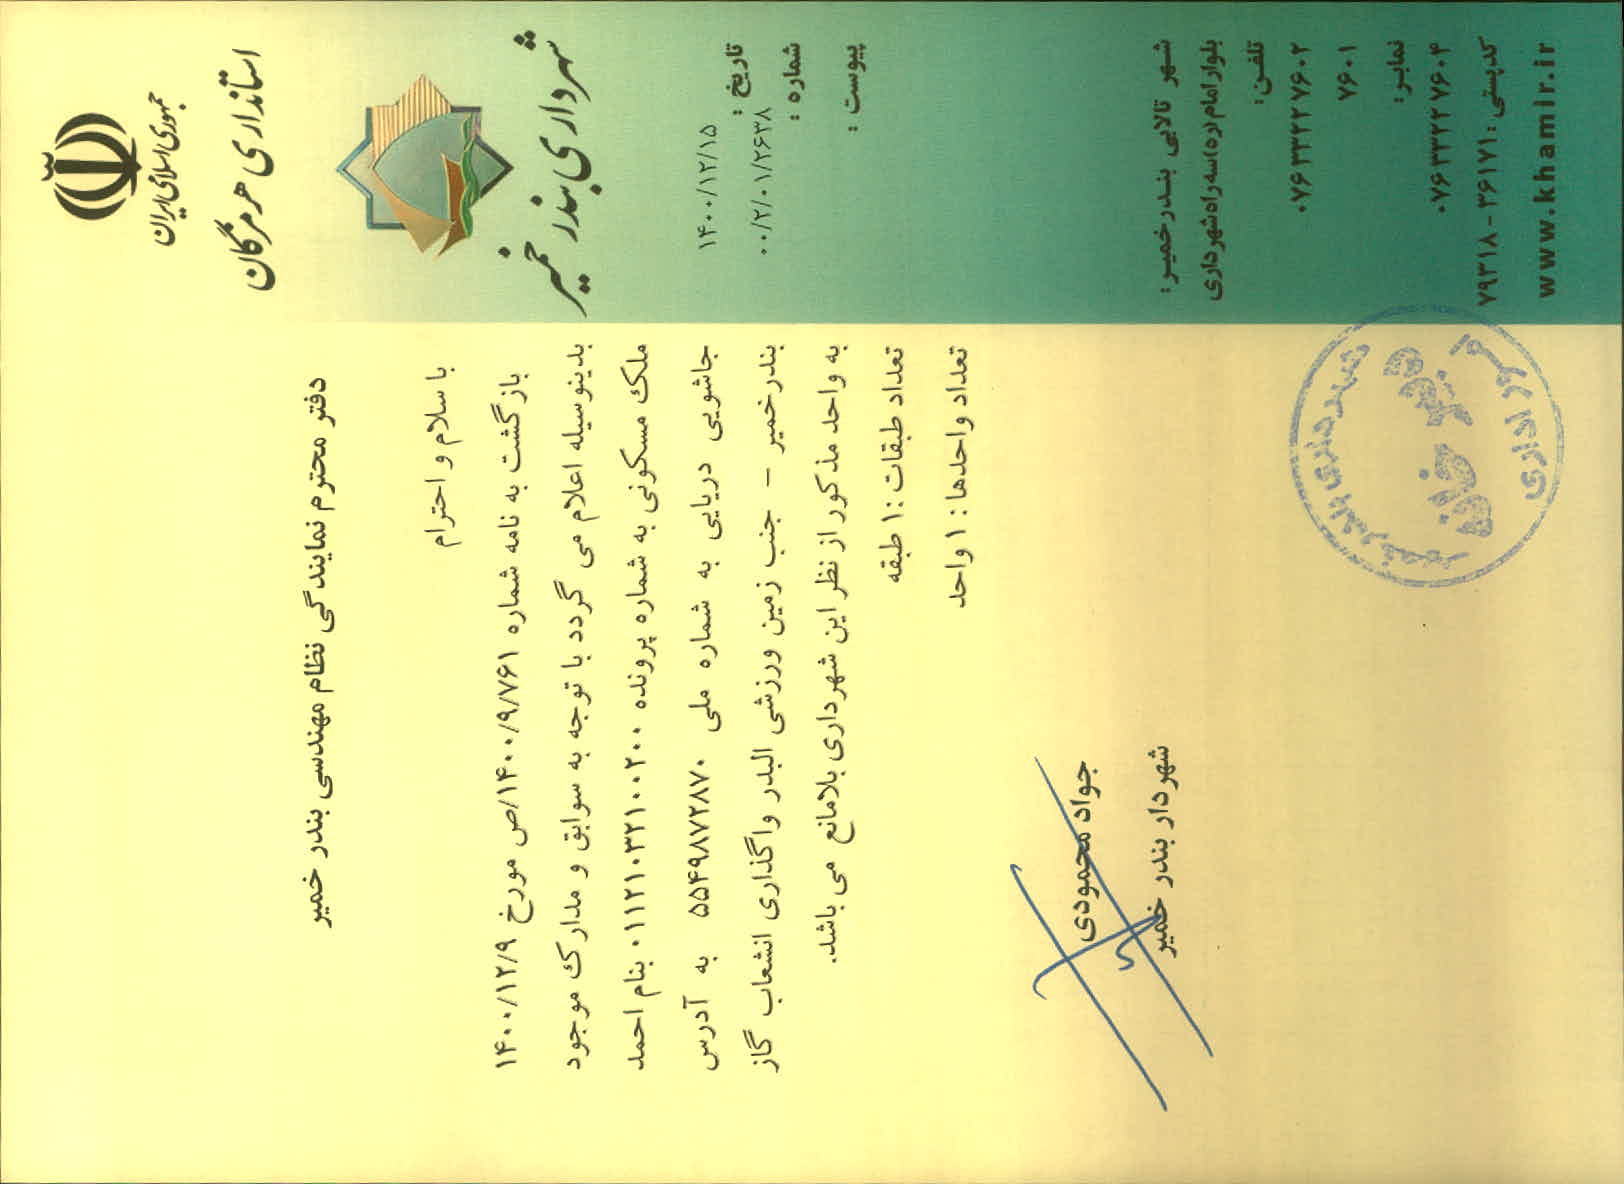 جمهوری اسلامی ایران
استانداری هرمزگان
شهرداری بندر خمیر
تاریخ :
۱۴۰۰/۱۲/۱۵
شماره :
۰۰/۲/۰۱/۲۶۳۸
پیوست :
دفتر محترم نمایندگی نظام مهندسی بندر خمیر
با سلام و احترام
بازگشت به نامه شماره ۱۴۰۰/۹/۷۶۱/ص مورخ ۱۴۰۰/۱۲/۹
بدینوسیله اعلام می گردد با توجه به سوابق و مدارک موجود
ملک مسکونی به شماره پرونده ۰۱۱۲۱۰۳۲۱۰۰۲۰۰ بنام احمد
جاشویی دریایی به شماره ملی ۵۵۴۹۸۷۲۸۷۰ به آدرس
بندرخمیر - جنب زمین ورزشی البدر واگذاری انشعاب گاز
به واحد مذکور از نظر این شهرداری بلامانع می باشد.
تعداد طبقات :۱ طبقه
تعداد واحدها : ۱ واحد
جواد محمودی
شهردار بندر خمیر
شهرداری بندر خمیر
امور اداری
شهر تالابی بندرخمیر:
بلوار امام (ره) سه راه شهرداری
تلفن:
۰۷۶۳۳۲۲۷۶۰۲
۷۶۰۱
نمابر:
۰۷۶۳۳۲۲۷۶۰۴
کدپستی : ۳۶۱۷۱ - ۷۹۳۱۸
www.khamir.ir